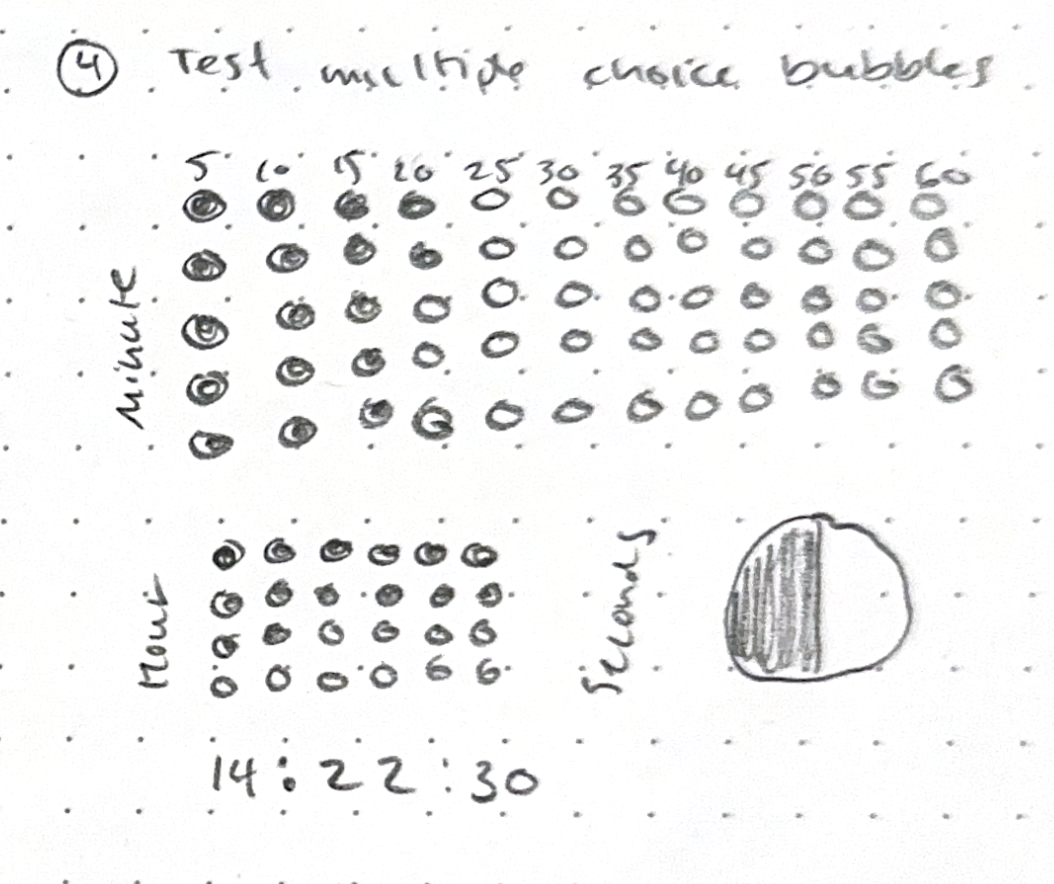 ④ Test multiple choice bubbles
5 10 15 20 25 30 35 40 45 50 55 60
Minute
Hour
Seconds
14:22:30